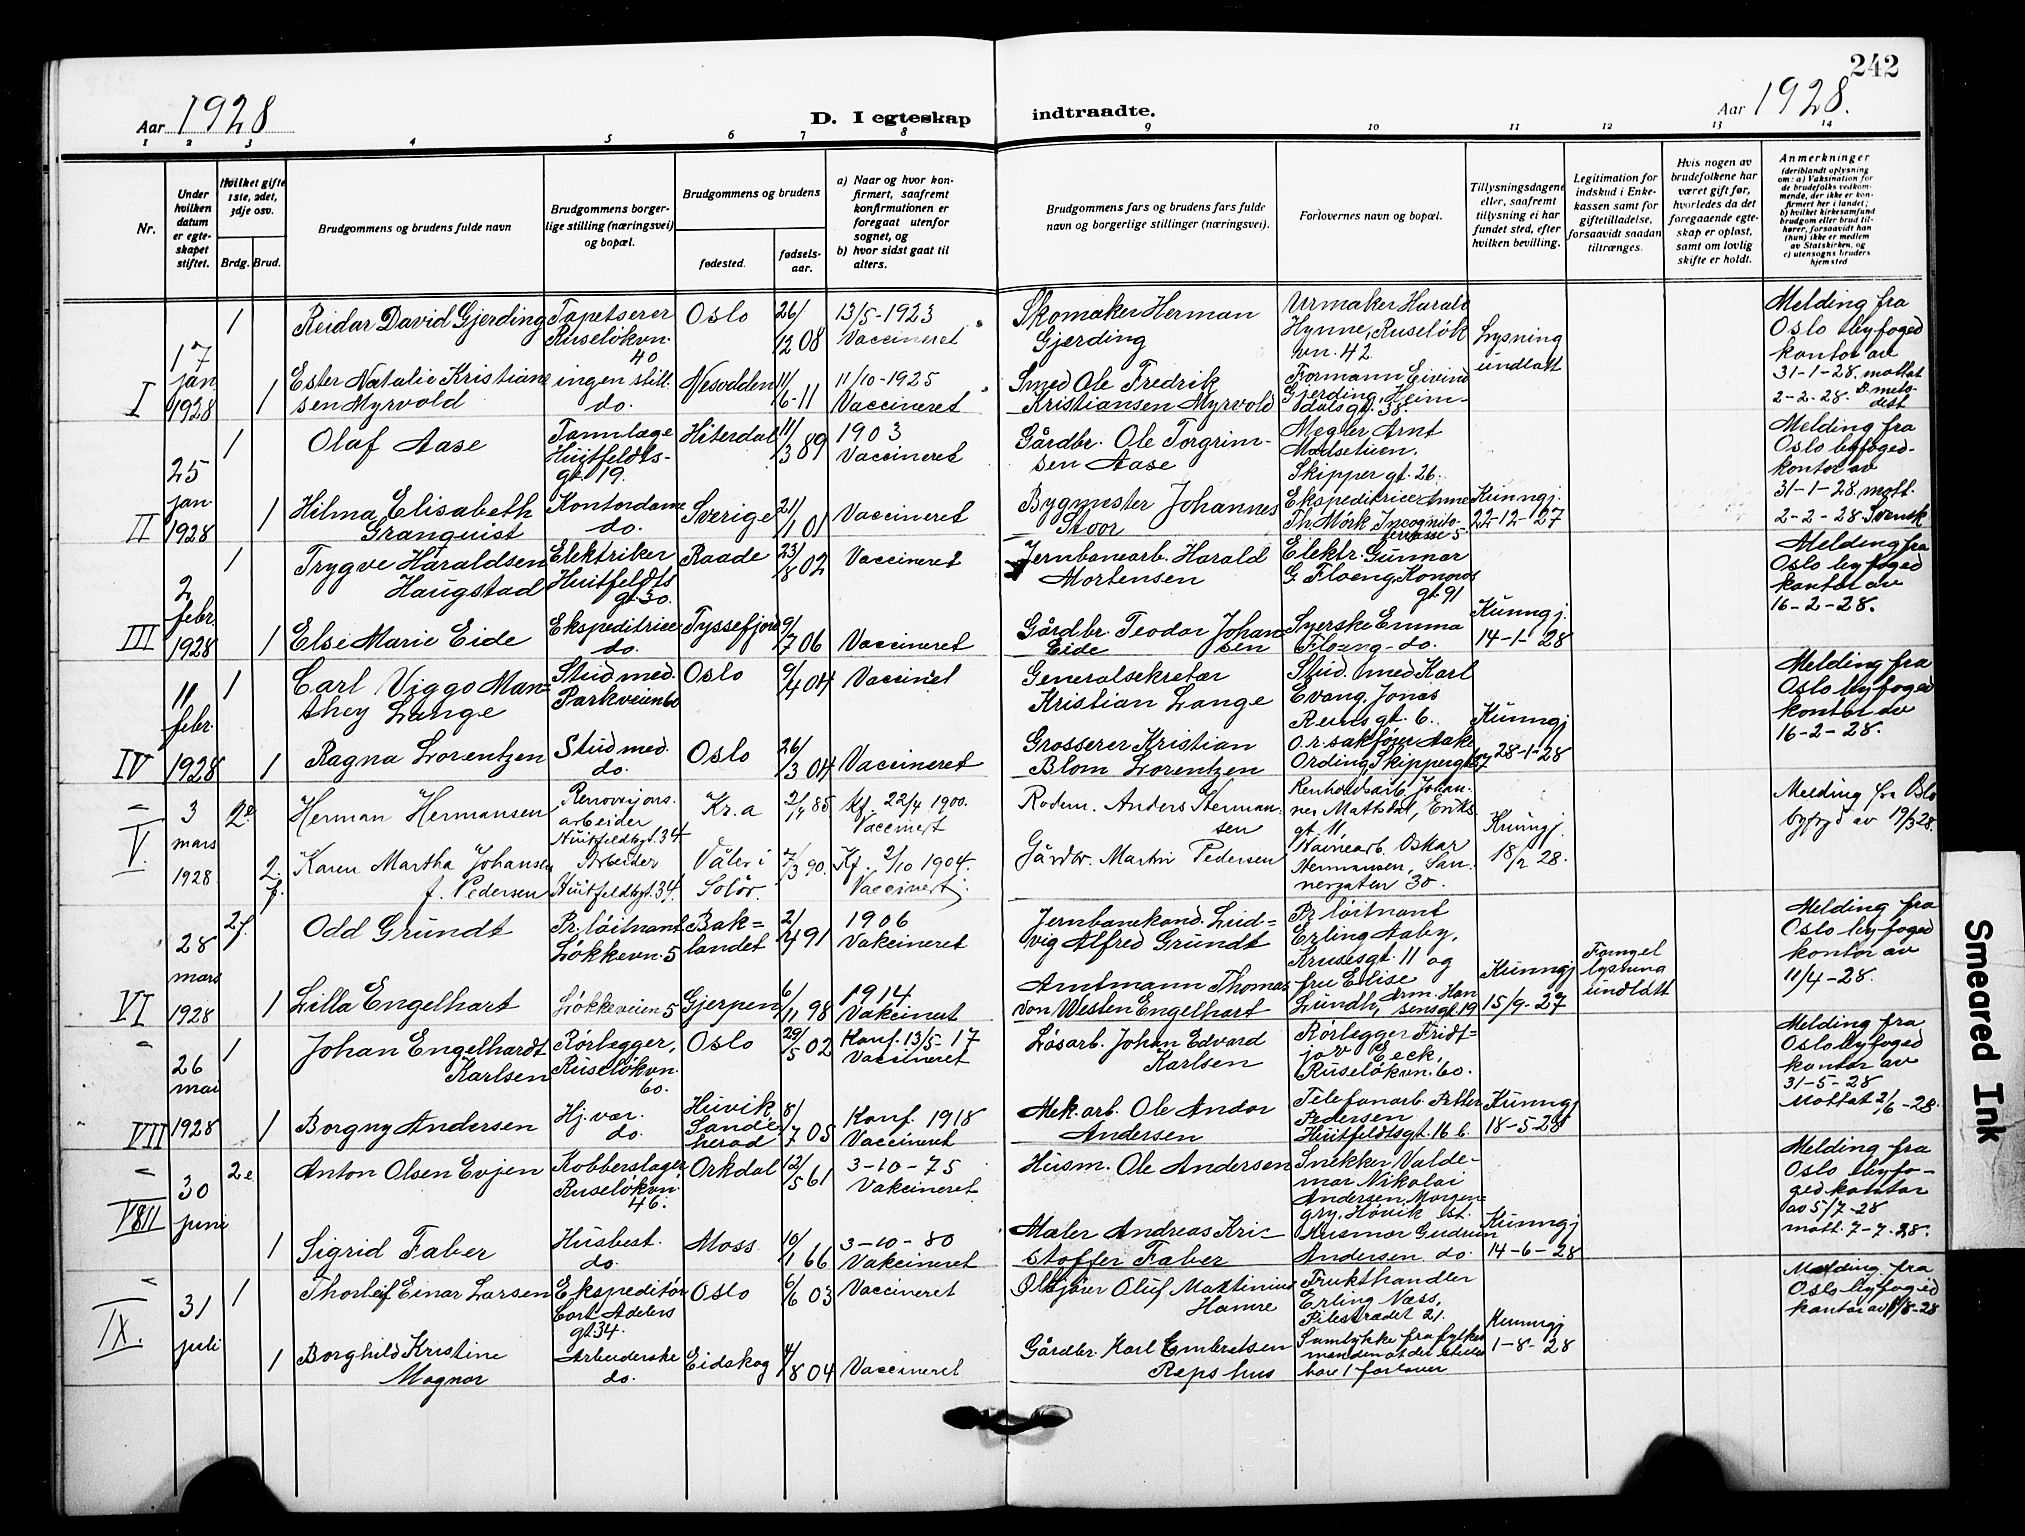 242
Aar 1928
D. I egteskap
indtraadte.
Aar 1928.
1 2 3 4 5 6 7 8 9 10 11 12 13 14
Nr.
Under
hvilken
datum
er egte-
skapet
stiftet.
Hvilket gifte
1ste, 2det,
3dje osv.
Brdg. Brud.
Brudgommens og brudens fulde navn
Brudgommens borger-
lige stilling (næringsvei)
og bopæl.
Brudgommens og brudens
fødested.
fødsels-
aar.
a) Naar og hvor kon-
firmert, saafremt
konfirmationen er
foregaat utenfor
sognet, og
b) hvor sidst gaat til
alters.
Brudgommens fars og brudens fars fulde
navn og borgerlige stillinger (næringsvei).
Forlovernes navn og bopæl.
Tillysningsdagene
eller, saafremt
tillysning ei har
fundet sted, efter
hvilken bevilling.
Legitimation for
indskud i Enke-
kassen samt for
giftetilladelse,
forsaavidt saadan
tiltrænges.
Hvis nogen av
brudefolkene har
været gift før,
hvorledes da det
foregaaende egte-
skap er opløst,
samt om lovlig
skifte er holdt.
Anmerkninger
(deriblandt oplysning
om: a) Vaksination for
de brudefolks vedkom-
mende, der ikke er kon-
firmert her i landet;
b) hvilket kirkesamfund
brudgom eller brud til-
hører, forsaavidt han
(hun) ikke er medlem
av Statskirken, og
c) utensogns bruders
hjemsted
I
17
jan
1928
1
Reidar David Gjerding
Tapetserer
Ruseløkvn.
40
Oslo
26/
12 08
13/5-1923
Vaccineret
Skomaker Herman
Gjerding
Urmaker Harald
Hynne, Ruseløk
vn. 42
Lysning
undlatt
Melding fra
Oslo byfoged
kontor av
31-1-28. mottat
2-2-28.
1
Ester Natalie Kristian
sen Myrvold
ingen still.
do.
Nesodden
11/
6-11
11/10-1925
Vaccineret
Smed Ole Fredrik
Kristiansen Myrvold
Formann Eivind
Gjerding, Heim-
dalsgt. 38.
II
25
jan.
1928
1
Olaf Aase
Tannlæge
Huitfeldts-
gt. 19.
Hiterdal
11/
3 89
1903
Vaccineret
Gårdbr. Ole Torgrim-
sen Aase
Megler Arnt
Madsetuen.
Skipper gt. 26.
Melding fra
Oslo byfoged-
kontor av
31-1-28. mott.
2-2-28. Svensk
1
Hilma Elisabeth
Granquist
Kontordame
do.
Sverige
21/
1 01
Vaccineret
Bygmester Johannes
Stoor
Ekspeditrice Anne
Th. Mørk, Incognito-
terrasse 5
Kunngj.
22-12-27
III
2
febr.
1928
1
Trygve Haraldsen
Haugstad
Elektriker
Huitfeldts
gt. 30.
Raade
23/
8 02
Vaccineret
Jernbanearb. Harald
Mortensen
Elektr. Gunnar
G. Floeng, Konows
gt. 91
Melding fra
Oslo byfoged
kontor av
16-2-28.
1
Else Marie Eide
Ekspeditrice
do.
Tyssefjord
9/
7 06
Vaccineret
Gårdbr. Teodor Johan
sen
Eide
Syerske Emma
Floeng - do.
Kunngj.
14-1-28
IV
11
febr.
1928
1
Carl Viggo Man=
they Lange
Stud med.
Parkveien 60
Oslo
9/
4 04
Vaccinet
Generalsekretær
Kristian Lange
Stud. med Karl
Evang, Jonas
Reinsgt. 6.
Kunngj
28-1-28
Melding fra
Oslo byfoged
kontor av
16-2-28.
1
Ragna Lorentzen
Stud med.
do.
Oslo
26/
3 04
Vaccineret
Grosserer Kristian
Blom Lorentzen
O.r.sakfører Aake
Ording, Skippergt
V.
3
mars
1928
2e
Herman Hermansen
Renovasjons.
arbeider
Huitfeldtsgt. 34
Kr.a
85
Kf. 22/4 1900.
Vaccinert
Rodem. Anders Herman-
sen
Renholdsarb. Johan-
nes Mattsdal, Eriks
gt. 11,
Kunngj.
18/2 28.
Melding fra Oslo
byfogd av 19/3 28.
2.
f.
Karen Martha Johansen
f. Pedersen
Arbeider
Huitfeldtsgt. 34.
Våler i
Solør.
7/
3 90.
Kf. 2/10 1904.
Vaccinert
Gårdbr. Martin Pedersen
Havnearb. Oskar
Hermansen, San-
nergaten 30.
VI
28
mars
1928
2f
Odd Grundt
Pr. løitnant
Løkkevn. 5
Bak=
landet
2/
4 91
1906
Vakcineret
Jernbanekond. Lud=
vig Alfred Grundt
Pr løitnant
Erling Aaby,
Krusesgt. 11 og
fru Elise
Lundh, Arm. Han
sensgt. 19
Kunngj
15/9-27
Fornyet
lysning
undlatt
Melding fra
Oslo byfoged
kontor av
11/4-28.
1
Lilla Engelhart
Løkkeveien 5
Gjerpen
6/
11 98
1914
Vakcinert
Amtmann Thomas
von Westen Engelhart
VII
26
mai
1928
1
Johan Engelhardt
Karlsen
Rørlegger,
Ruseløkvn.
60.
Oslo
29/
5 02
Konf. 13/5-17
Vaccineret
Løsarb. Johan Edvard
Karlsen
Rørlegger Fridt=
jov Eeck,
Ruseløkvn. 60.
Melding fra
Oslo byfoged
kontor av
31-5-28
Mottat 2/6-28.
1
Borgny Andersen
Hj. vær.
do.
Huvik
Sande
herad
8/
7 05
Konf. 1918
Vaccineret
Mek. arb. Ole Andor
Andersen
Telefonarb. Petter
Pedersen
Huitfeldtsgt. 16 b.
Kunngj
18-5-28
VIII
30
juni
2e
Anton Olsen Evjen
Kobberslager
Ruseløkvn
46.
Orkdal
12/
5 61
3-10-75
Vakcineret
Husm. Ole Andersen
Snekker Valde-
mar Nikolai
Andersen, Morgen=
gry, Høvik st.
Melding fra
Oslo byfo-
gedkontor
av 5/7-28
mott. 7-7-28.
1
Sigrid Faber
Husbest.
do.
Moss
10/
1 66
3-10-80
Vakcineret
Maler Andreas Kri-
stoffer Faber
Husmor Gudrun
Andersen do.
Kunngj
14-6-28
IX.
31
juli
1
Thorleif Einar Larsen
Ekspeditør
Cort Adelers
gt 34.
Oslo
6/
6 03
Vaccineret
Oluf Martinius
Hamre
Frukthandler
Erling Næss,
Pilestrædet 21.
Kunngj
1-8-28
Melding fra
Oslo byfoged
kontor av 1/8-28
1
Borghild Kristine
Magnor
Arbeiderske
do.
Eidskog
4/
8 04
Vaccineret
Gårdbr. Karl Embretsen
Repshus
Samtykke fra fylkes
mannen at der
bare 1 forlover
Smeared Ink